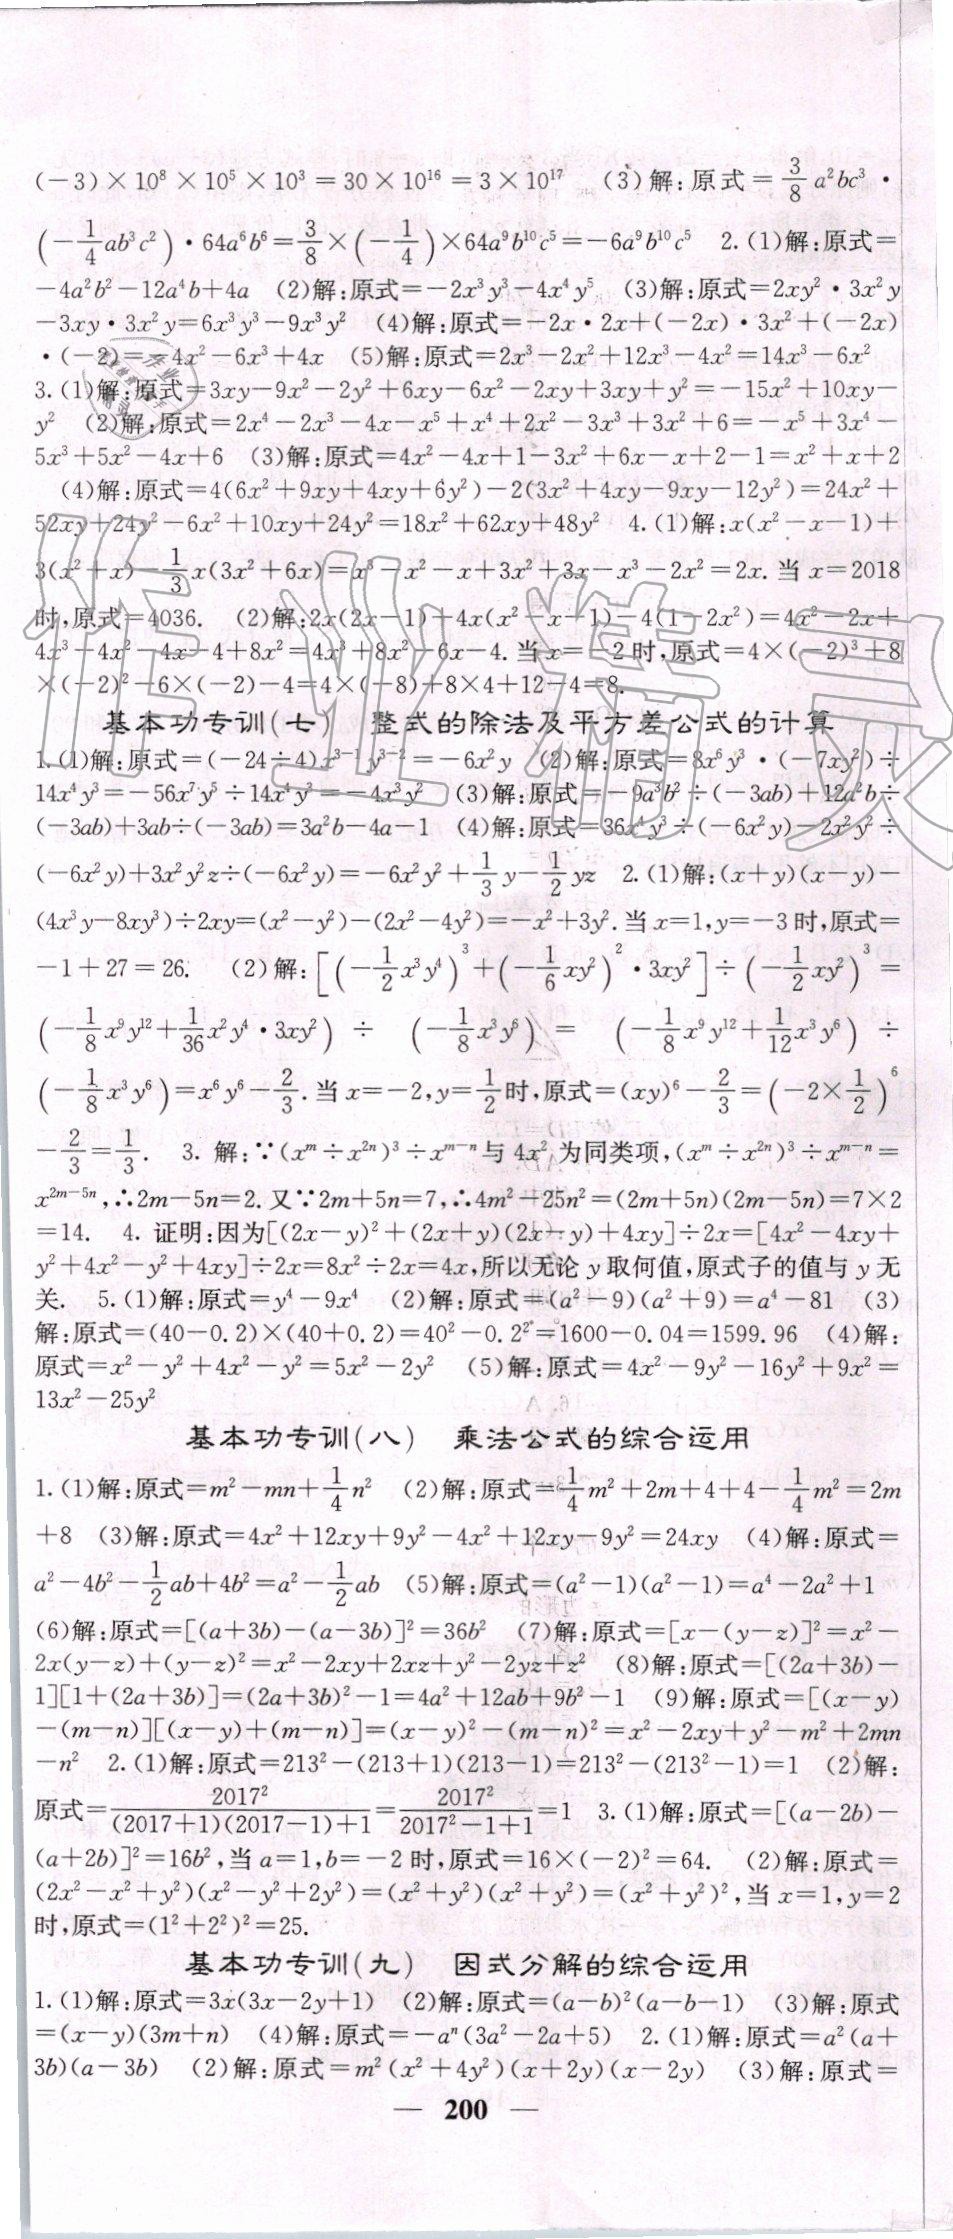 (-3)×10⁸×10⁵×10³=30×10¹⁶=3×10¹⁷ (3)解:原式=3/8 a²bc³·
(-1/4 ab³c²)·64a⁶b⁶=3/8×(-1/4)×64a⁹b¹⁰c⁵=-6a⁹b¹⁰c⁵ 2.(1)解:原式=
-4a²b²-12a⁴b+4a (2)解:原式=-2x³y³-4x⁴y⁵ (3)解:原式=2xy²·3x²y
-3xy·3x²y=6x³y³-9x³y² (4)解:原式=-2x·2x+(-2x)·3x²+(-2x)
·(-2)=-4x²-6x³+4x (5)解:原式=2x³-2x²+12x³-4x²=14x³-6x²
3.(1)解:原式=3xy-9x²-2y²+6xy-6x²-2xy+3xy+y²=-15x²+10xy-
y² (2)解:原式=2x⁴-2x³-4x-x⁵+x⁴+2x²-3x³+3x²+6=-x⁵+3x⁴-
5x³+5x²-4x+6 (3)解:原式=4x²-4x+1-3x²+6x-x+2-1=x²+x+2
(4)解:原式=4(6x²+9xy+4xy+6y²)-2(3x²+4xy-9xy-12y²)=24x²+
52xy+24y²-6x²+10xy+24y²=18x²+62xy+48y² 4.(1)解:x(x²-x-1)+
3(x²+x)-1/3 x(3x²+6x)=x³-x²-x+3x²+3x-x³-2x²=2x.当x=2018
时,原式=4036. (2)解:2x(2x-1)+4x(x²-x-1)-4(1-2x²)=4x²-2x+
4x³-4x²-4x-4+8x²=4x³+8x²-6x-4.当x=-2时,原式=4×(-2)³+8
×(-2)²-6×(-2)-4=4×(-8)+8×4+12-4=8.
基本功专训(七) 整式的除法及平方差公式的计算
1.(1)解:原式=(-24÷4)x³⁻¹y³⁻²=-6x²y (2)解:原式=8x⁶y³·(-7xy²)÷
14x⁴y³=-56x⁷y⁵÷14x⁴y³=-4x³y² (3)解:原式=-9a³b²÷(-3ab)+12a²b÷
(-3ab)+3ab÷(-3ab)=3a²b-4a-1 (4)解:原式=36x⁴y³÷(-6x²y)-2x²y²÷
(-6x²y)+3x²y²z÷(-6x²y)=-6x²y²+1/3 y-1/2 yz 2.(1)解:(x+y)(x-y)-
(4x³y-8xy³)÷2xy=(x²-y²)-(2x²-4y²)=-x²+3y².当x=1,y=-3时,原式=
-1+27=26. (2)解:[(-1/2 x³y⁴)³+(-1/6 xy²)²·3xy²]÷(-1/2 xy²)³=
(-1/8 x⁹y¹²+1/36 x²y⁴·3xy²)÷(-1/8 x³y⁶)=(-1/8 x⁹y¹²+1/12 x³y⁶)÷
(-1/8 x³y⁶)=x⁶y⁶-2/3.当x=-2,y=1/2时,原式=(xy)⁶-2/3=(-2×1/2)⁶
-2/3=1/3. 3.解:∵(xᵐ÷x²ⁿ)³÷xᵐ⁻ⁿ与4x²为同类项,(xᵐ÷x²ⁿ)³÷xᵐ⁻ⁿ=
x²ᵐ⁻⁵ⁿ,∴2m-5n=2.又∵2m+5n=7,∴4m²-25n²=(2m+5n)(2m-5n)=7×2
=14. 4.证明:因为[(2x-y)²+(2x+y)(2x-y)+4xy]÷2x=[4x²-4xy+
y²+4x²-y²+4xy]÷2x=8x²÷2x=4x,所以无论y取何值,原式子的值与y无
关. 5.(1)解:原式=y⁴-9x⁴ (2)解:原式=(a²-9)(a²+9)=a⁴-81 (3)
解:原式=(40-0.2)×(40+0.2)=40²-0.2²=1600-0.04=1599.96 (4)解:
原式=x²-y²+4x²-y²=5x²-2y² (5)解:原式=4x²-9y²-16y²+9x²=
13x²-25y²
基本功专训(八) 乘法公式的综合运用
1.(1)解:原式=m²-mn+1/4 n² (2)解:原式=1/4 m²+2m+4+4-1/4 m²=2m
+8 (3)解:原式=4x²+12xy+9y²-4x²+12xy-9y²=24xy (4)解:原式=
a²-4b²-1/2 ab+4b²=a²-1/2 ab (5)解:原式=(a²-1)(a²-1)=a⁴-2a²+1
(6)解:原式=[(a+3b)-(a-3b)]²=36b² (7)解:原式=[x-(y-z)]²=x²-
2x(y-z)+(y-z)²=x²-2xy+2xz+y²-2yz+z² (8)解:原式=[(2a+3b)-
1][1+(2a+3b)]=(2a+3b)²-1=4a²+12ab+9b²-1 (9)解:原式=[(x-y)
-(m-n)][(x-y)+(m-n)]=(x-y)²-(m-n)²=x²-2xy+y²-m²+2mn
-n² 2.(1)解:原式=213²-(213+1)(213-1)=213²-(213²-1)=1 (2)解:
原式=2017²/((2017+1)(2017-1)+1)=2017²/(2017²-1+1)=1 3.(1)解:原式=[(a-2b)-
(a+2b)]²=16b²,当a=1,b=-2时,原式=16×(-2)²=64. (2)解:原式=
(2x²-x²+y²)(x²-y²+2y²)=(x²+y²)(x²+y²)=(x²+y²)²,当x=1,y=2
时,原式=(1²+2²)²=25.
基本功专训(九) 因式分解的综合运用
1.(1)解:原式=3x(3x-2y+1) (2)解:原式=(a-b)²(a-b-1) (3)解:原式
=(x-y)(3m+n) (4)解:原式=-aⁿ(3a²-2a+5) 2.(1)解:原式=a²(a+
3b)(a-3b) (2)解:原式=m²(x²+4y²)(x+2y)(x-2y) (3)解:原式=
— 200 —
作业精灵